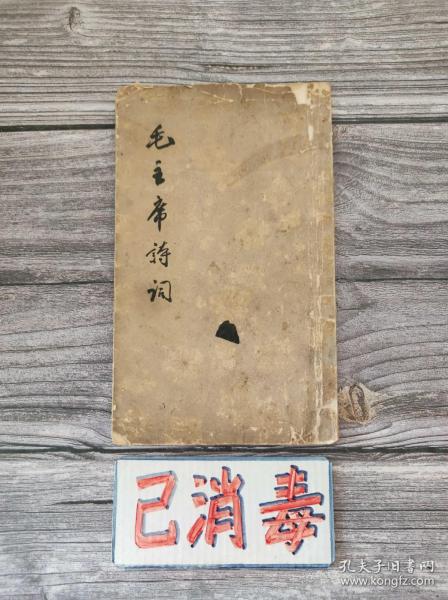 毛主席詩詞
已消毒
孔夫子旧书网
www.kongfz.com